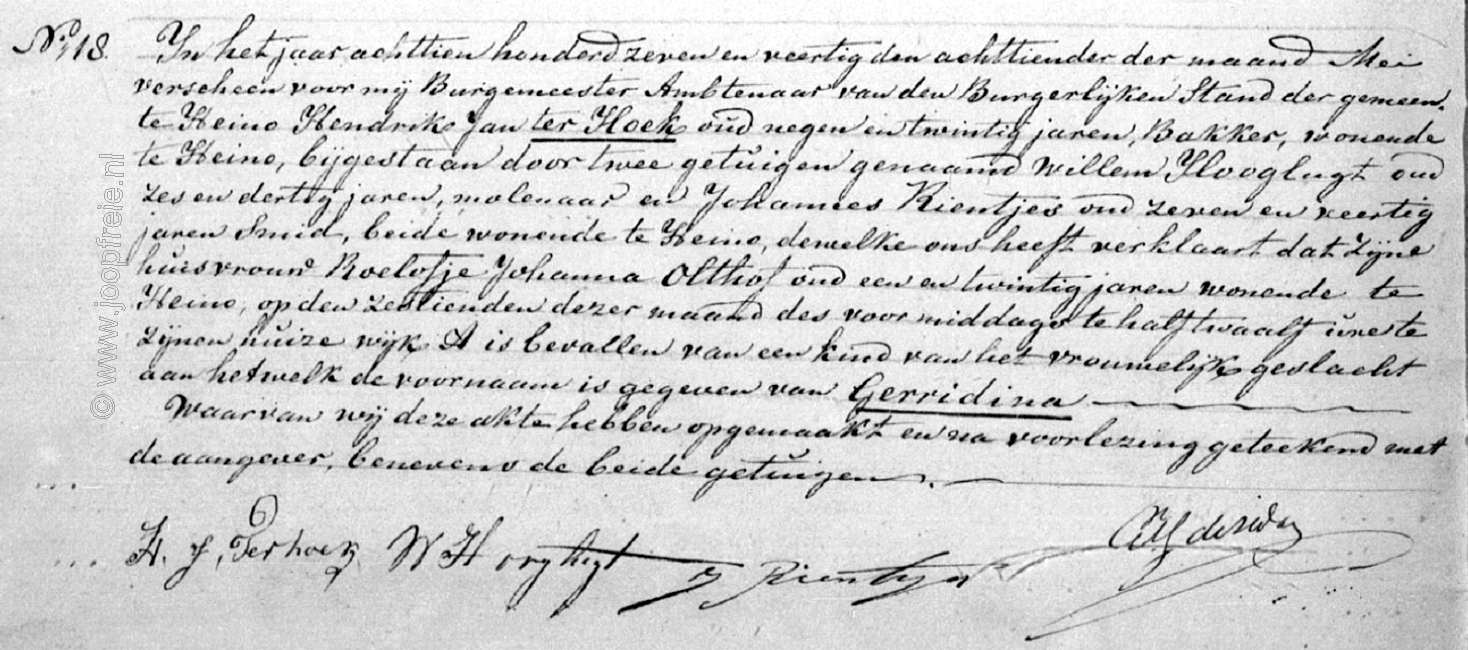 No. 18. In het jaar achttien honderd zeven en veertig den achttiender der maand Mei
verscheen voor my Burgemeester Ambtenaar van den Burgerlijken Stand der gemeen„
te Heino Hendrik Jan ter Hoek oud negen en twintig jaren, Bakker, wonende
te Heino, bijgestaan door twee getuigen genaamd Willem Hooglugt oud
zes en dertig jaren, molenaar en Johannes Rientjes oud zeven en veertig
jaren Smid, beide wonende te Heino, dewelke ons heeft verklaart dat zijne
huisvrouw Roelofje Johanna Olthof oud een en twintig jaren wonende te
Heino, op den zestienden dezer maand des voormiddags te half twaalf ure te
zijnen huize wijk A is bevallen van een kind van het vrouwelijk geslacht
aan hetwelk de voornaam is gegeven van Gerridina
Waarvan wij deze akte hebben opgemaakt en na voorlezing geteekend met
de aangever, benevens de beide getuigen.
H. J. Terhoek W Hooglugt J Rientjes
© www.joopfreie.nl